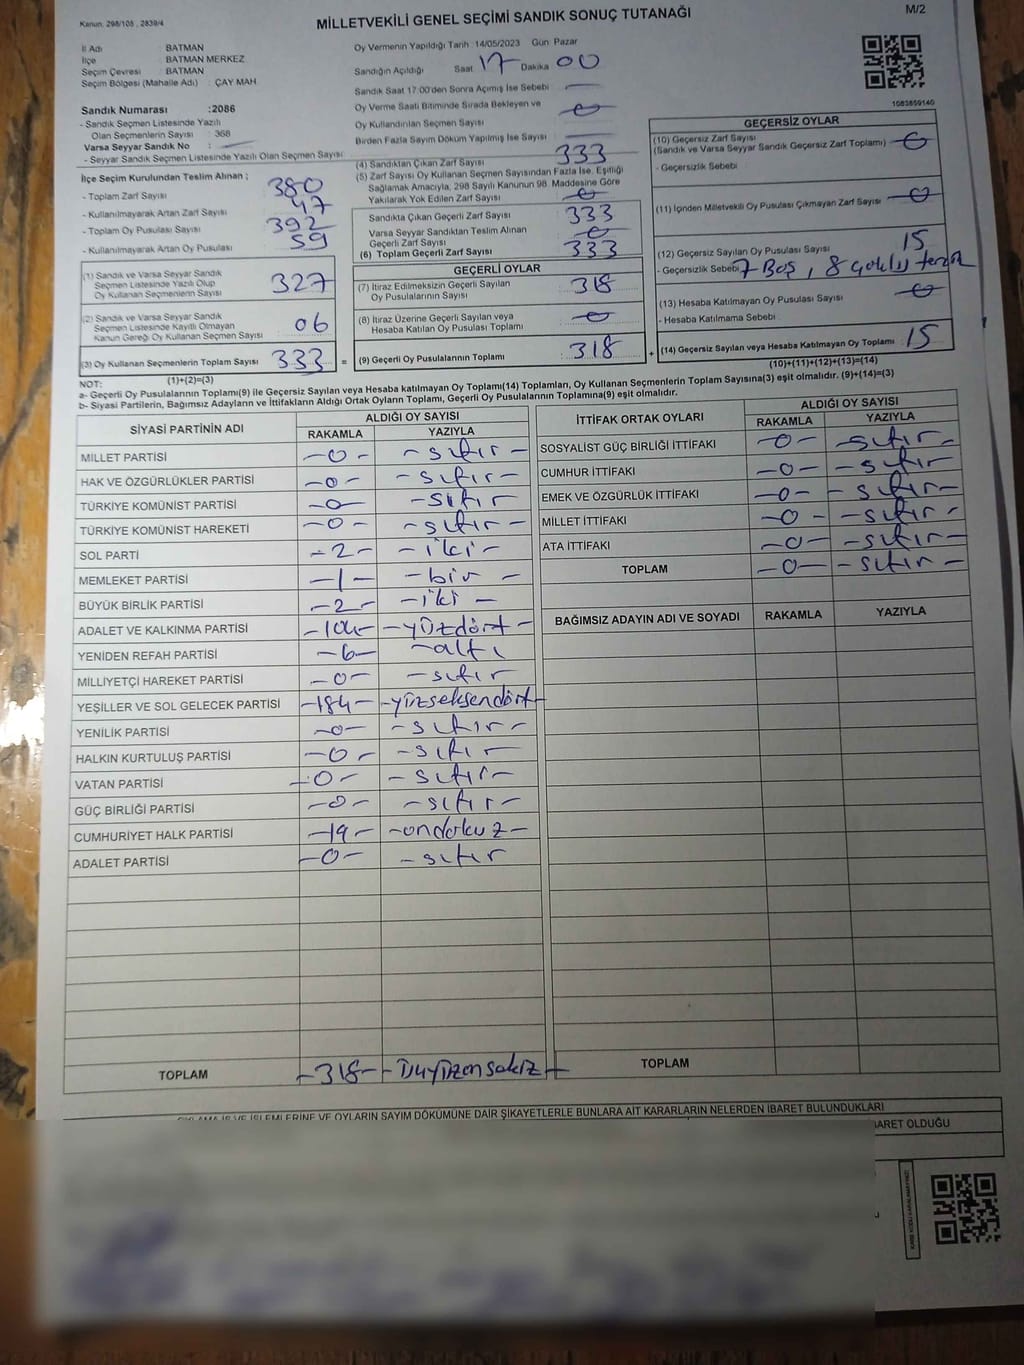 Kanun: 298/105 , 2839/4
MİLLETVEKİLİ GENEL SEÇİMİ SANDIK SONUÇ TUTANAĞI
M/2
İl Adı : BATMAN
İlçe : BATMAN MERKEZ
Seçim Çevresi : BATMAN
Seçim Bölgesi (Mahalle Adı) : ÇAY MAH
Sandık Numarası :2086
- Sandık Seçmen Listesinde Yazılı
Olan Seçmenlerin Sayısı : 368
Varsa Seyyar Sandık No :
- Seyyar Sandık Seçmen Listesinde Yazılı Olan Seçmen Sayısı
İlçe Seçim Kurulundan Teslim Alınan ;
- Toplam Zarf Sayısı : 380
- Kullanılmayarak Artan Zarf Sayısı : 47
- Toplam Oy Pusulası Sayısı : 392
- Kullanılmayarak Artan Oy Pusulası : 59
(1) Sandık ve Varsa Seyyar Sandık
Seçmen Listesinde Yazılı Olup
Oy Kullanan Seçmenlerin Sayısı : 327
(2) Sandık ve Varsa Seyyar Sandık
Seçmen Listesinde Kayıtlı Olmayan
Kanun Gereği Oy Kullanan Seçmen Sayısı : 06
(3) Oy Kullanan Seçmenlerin Toplam Sayısı : 333 =
(1)+(2)=(3)
Oy Vermenin Yapıldığı Tarih :14/05/2023 Gün: Pazar
Sandığın Açıldığı Saat 17 Dakika 00
Sandık Saat 17:00'den Sonra Açımış İse Sebebi :
Oy Verme Saati Bitiminde Sırada Bekleyen ve
Oy Kullandırılan Seçmen Sayısı : 0
Birden Fazla Sayım Döküm Yapılmış İse Sayısı :
(4) Sandıktan Çıkan Zarf Sayısı : 333
(5) Zarf Sayısı Oy Kullanan Seçmen Sayısından Fazla İse, Eşitliği
Sağlamak Amacıyla, 298 Sayılı Kanunun 98. Maddesine Göre
Yakılarak Yok Edilen Zarf Sayısı : 0
Sandıkta Çıkan Geçerli Zarf Sayısı : 333
Varsa Seyyar Sandıktan Teslim Alınan
Geçerli Zarf Sayısı : 0
(6) Toplam Geçerli Zarf Sayısı : 333
GEÇERLİ OYLAR
(7) İtiraz Edilmeksizin Geçerli Sayılan
Oy Pusulalarının Sayısı : 318
(8) İtiraz Üzerine Geçerli Sayılan veya
Hesaba Katılan Oy Pusulası Toplamı : 0
(9) Geçerli Oy Pusulalarının Toplamı : 318 +
1083859140
GEÇERSİZ OYLAR
(10) Geçersiz Zarf Sayısı
(Sandık ve Varsa Seyyar Sandık Geçersiz Zarf Toplamı) : 0
- Geçersizlik Sebebi:
(11) İçinden Milletvekili Oy Pusulası Çıkmayan Zarf Sayısı : 0
(12) Geçersiz Sayılan Oy Pusulası Sayısı : 15
- Geçersizlik Sebebi: 7 Boş , 8 çoklu tercih
(13) Hesaba Katılmayan Oy Pusulası Sayısı : 0
- Hesaba Katılmama Sebebi :
(14) Geçersiz Sayılan veya Hesaba Katılmayan Oy Toplamı : 15
(10)+(11)+(12)+(13)=(14)
NOT:
a- Geçerli Oy Pusulalarının Toplamı(9) ile Geçersiz Sayılan veya Hesaba katılmayan Oy Toplamı(14) Toplamları, Oy Kullanan Seçmenlerin Toplam Sayısına(3) eşit olmalıdır. (9)+(14)=(3)
b- Siyasi Partilerin, Bağımsız Adayların ve İttifakların Aldığı Ortak Oyların Toplamı, Geçerli Oy Pusulalarının Toplamına(9) eşit olmalıdır.
SİYASİ PARTİNİN ADI ALDIĞI OY SAYISI
RAKAMLA YAZIYLA
MİLLET PARTİSİ -0- -sıfır-
HAK VE ÖZGÜRLÜKLER PARTİSİ -0- -sıfır-
TÜRKİYE KOMÜNİST PARTİSİ -0- -sıfır
TÜRKİYE KOMÜNİST HAREKETİ -0- -sıfır-
SOL PARTİ -2- -iki-
MEMLEKET PARTİSİ -1- -bir -
BÜYÜK BİRLİK PARTİSİ -2- -iki -
ADALET VE KALKINMA PARTİSİ -104- -yüzdört-
YENİDEN REFAH PARTİSİ -6- -altı
MİLLİYETÇİ HAREKET PARTİSİ -0- -sıfır
YEŞİLLER VE SOL GELECEK PARTİSİ -184- -yüzseksendört-
YENİLİK PARTİSİ -0- -sıfır-
HALKIN KURTULUŞ PARTİSİ -0- -sıfır
VATAN PARTİSİ -0- -sıfır-
GÜÇ BİRLİĞİ PARTİSİ -0- -sıfır-
CUMHURİYET HALK PARTİSİ -19- -ondokuz-
ADALET PARTİSİ -0- -sıfır
TOPLAM -318- -üçyüzonsekiz-
İTTİFAK ORTAK OYLARI ALDIĞI OY SAYISI
RAKAMLA YAZIYLA
SOSYALİST GÜÇ BİRLİĞİ İTTİFAKI -0- -sıfır-
CUMHUR İTTİFAKI -0- -sıfır-
EMEK VE ÖZGÜRLÜK İTTİFAKI -0- -sıfır-
MİLLET İTTİFAKI -0- -sıfır-
ATA İTTİFAKI -0- -sıfır-
TOPLAM -0- -sıfır-
BAĞIMSIZ ADAYIN ADI VE SOYADI RAKAMLA YAZIYLA
TOPLAM
VE OYLARIN SAYIM DÖKÜMÜNE DAİR ŞİKAYETLERLE BUNLARA AİT KARARLARIN NELERDEN İBARET BULUNDUKLARI
OLDUĞU